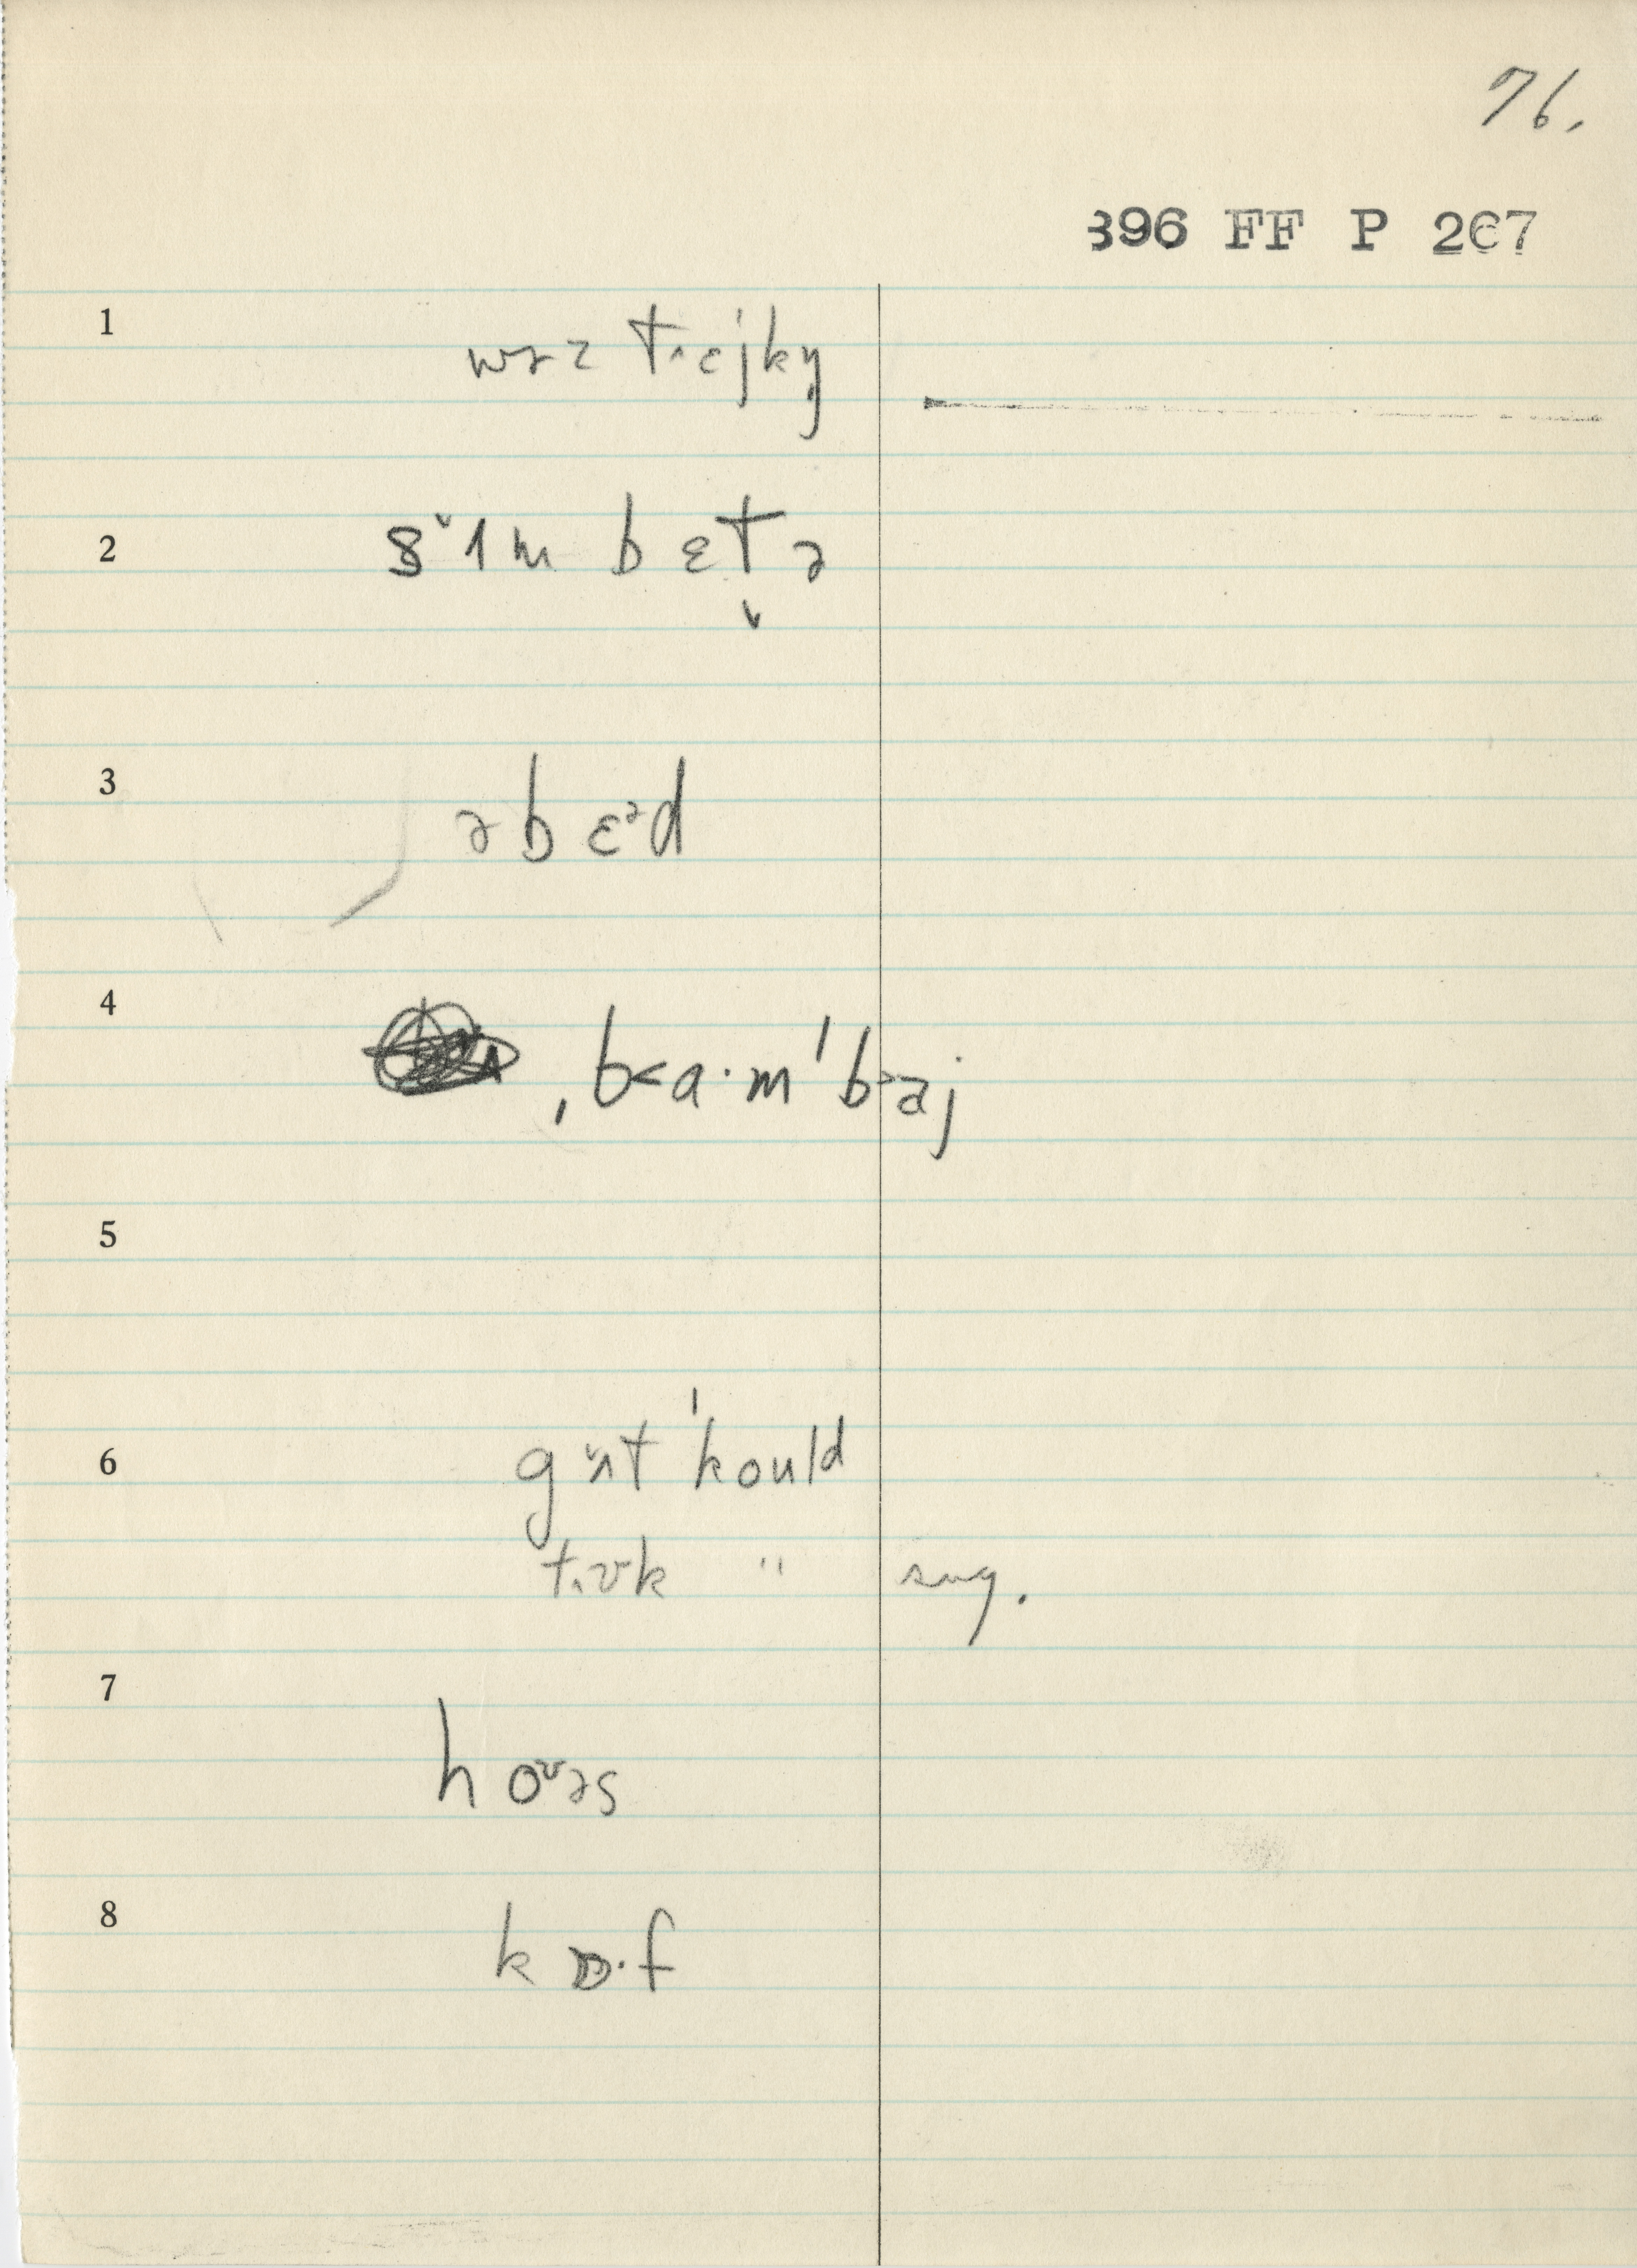 76.
396 FF P 267
1 wəz t˄ɛjkŋ̩
2 sˇɪm bɛt̬ə
3 ə b ɛᵊd
4 ˌb<a·m ˈb>aj
5
6 gˇʌt ˈkould
t˄ʊk " sug.
7 hoᶷəs
8 k ɒ·f